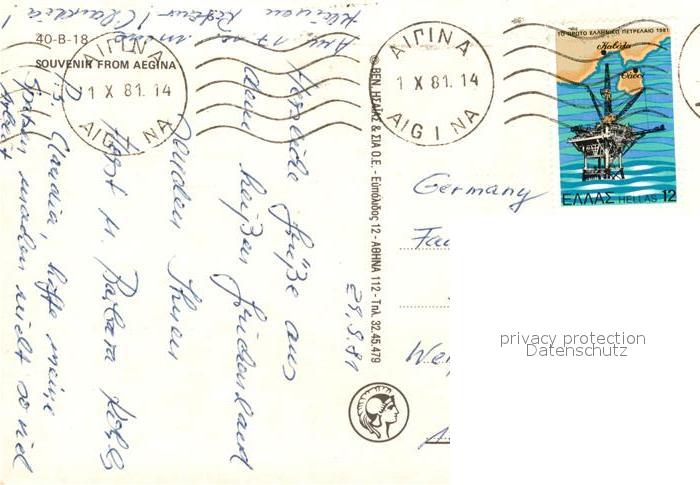 40-B-18
SOUVENIR FROM AEGINA
ΑΙΓΙΝΑ
1 X 81. 14
AIGINA
ΑΙΓΙΝΑ
1 X 81. 14
AIGINA
ΤΟ ΠΡΩΤΟ ΕΛΛΗΝΙΚΟ ΠΕΤΡΕΛΑΙΟ 1981
Καβάλα
Θάσος
ΕΛΛΑΣ HELLAS 12
© ΒΕΝ. ΗΣΑΪΑΣ & ΣΙΑ Ο.Ε. - Ευπόλιδος 12 - ΑΘΗΝΑ 112 - Τηλ. 32.45.479
29.9.81
Herzliche Grüße aus
dem heißen Griechenland
senden Ihnen
Horst u. Barbara
P.S. Claudia, hoffe meine
machen nicht so viel
Arbeit
Germany
privacy protection
Datenschutz